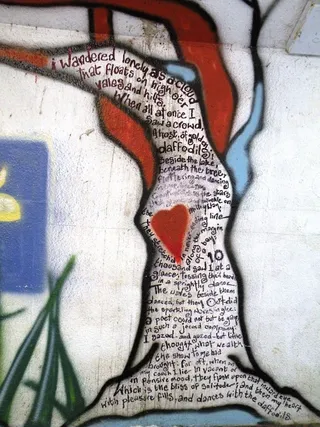 i wandered lonely as a cloud
that floats on high o'er
vales and hills,
When all at once I
saw a crowd,
A host, of golden
daffodils
Beside the lake,
beneath the trees,
Fluttering and dancing
line
10
thousand saw I at a
glance, tossing their heads
in a sprightly dance.
The waves beside them
danced; but they Outdid
the sparkling waves in glee:
a poet could not but be gay
in such a jocund company:
I gazed - and gazed - but little
thought what wealth
the show to me had
brought: for oft, when on
my couch I lie In vacant or
in pensive mood, they flash upon that inward eye
Which is the bliss of solitude; and then my heart
with pleasure fills, and dances with the daffodils.